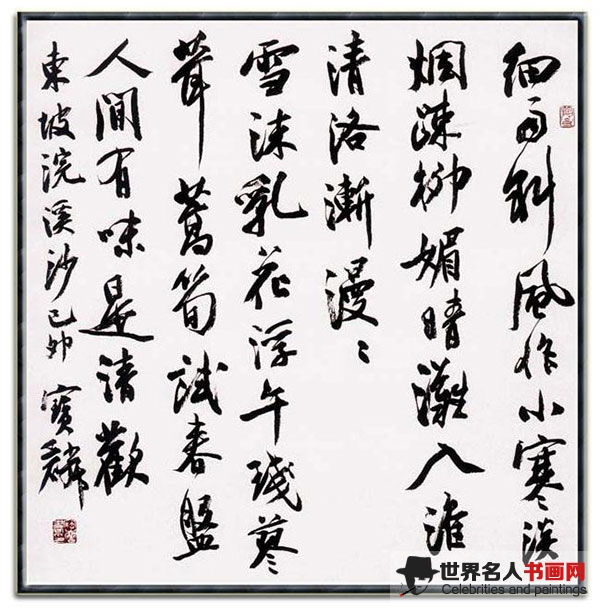 細雨斜風作小寒淡
烟疎柳媚晴灘入淮
清洛漸漫〻
雪沫乳花浮午琖蓼
茸蒿筍試春盤
人間有味是清歡
東坡浣溪沙己卯寶麟
世界名人书画网
Celebrities and paintings